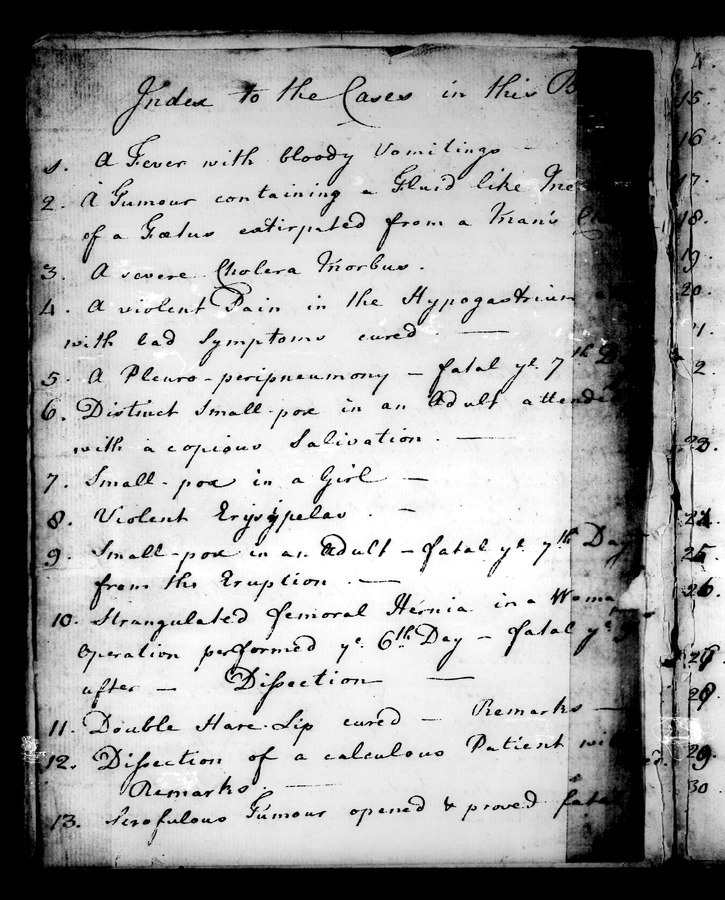 Index to the Cases in this B
1. A Fever with bloody Vomitings —
2. A Tumour containing a Fluid like
of a Fœtus extirpated from a Man's
3. A severe Cholera Morbus.
4. A violent Pain in the Hypogastrium
with bad Symptoms cured —
5. A Pleuro-peripneumony — fatal ye. 7th
6. Distinct Small-pox in an Adult attended
with a copious Salivation. —
7. Small-pox in a Girl —
8. Violent Erysypelas. —
9. Small-pox in an Adult — fatal ye 7th Day
from the Eruption. —
10. Strangulated femoral Hernia in a Woma
Operation performed ye. 6th Day — fatal ye
after — Dissection —
11. Double Hare-Lip cured — Remarks —
12. Dissection of a calculous Patient wi
Remarks. —
13. Scrofulous Tumour opened & proved fatal
4.
15
16
17.
18.
19
20
2.
23.
24.
25.
26.
27
28
29
30